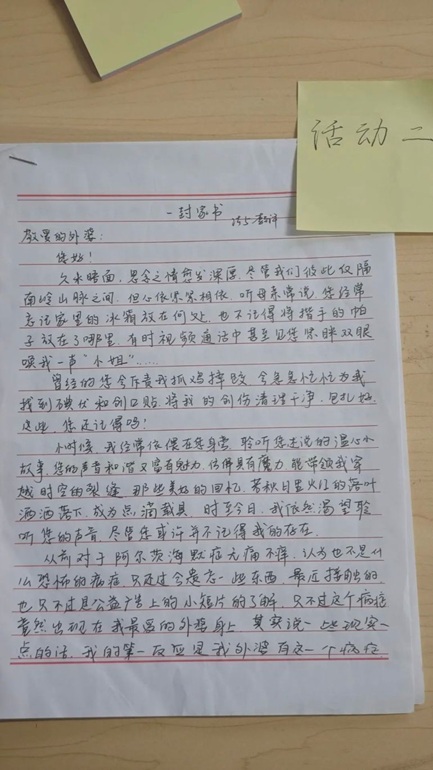 活动二
一封家书
敬爱的外婆:
您好!
久未晤面,思念之情愈发深厚,尽管我们彼此仅隔
南岭山脉之间,但心依紧紧相依,听母亲常说,您经常
忘记家里的冰箱放在何处,也不记得将揩手的帕
子放在了哪里,有时视频通话中甚至见您紧眯双眼
唤我一声“小姐”……
曾经的您会斥责我抓鸡摔跤,会急急忙忙为我
找到碘伏和创口贴,将我的创伤清理干净,包扎好,
这些,您还记得吗!
小时候,我经常依偎在您身旁,聆听您述说的温心小
故事,您的声音和谐又富有魅力,仿佛具有魔力,能带领我穿
越时空的裂缝,那些美好的回忆,若秋日里火红的落叶
洒洒落下,成为点滴载具,时至今日,我依然渴望聆
听您的声音,尽管您或许并不记得我的存在。
从前对于阿尔茨海默症无痛不痒,认为也不是什
么恐怖的病症,只是过会遗忘一些东西,最近接触的
也只不过是公益广告上的小短片的了解,只不过这个病症
竟然出现在我最爱的外婆身上,其实说一些现实一
点的话,我的第一反应是我外婆有这一个病症